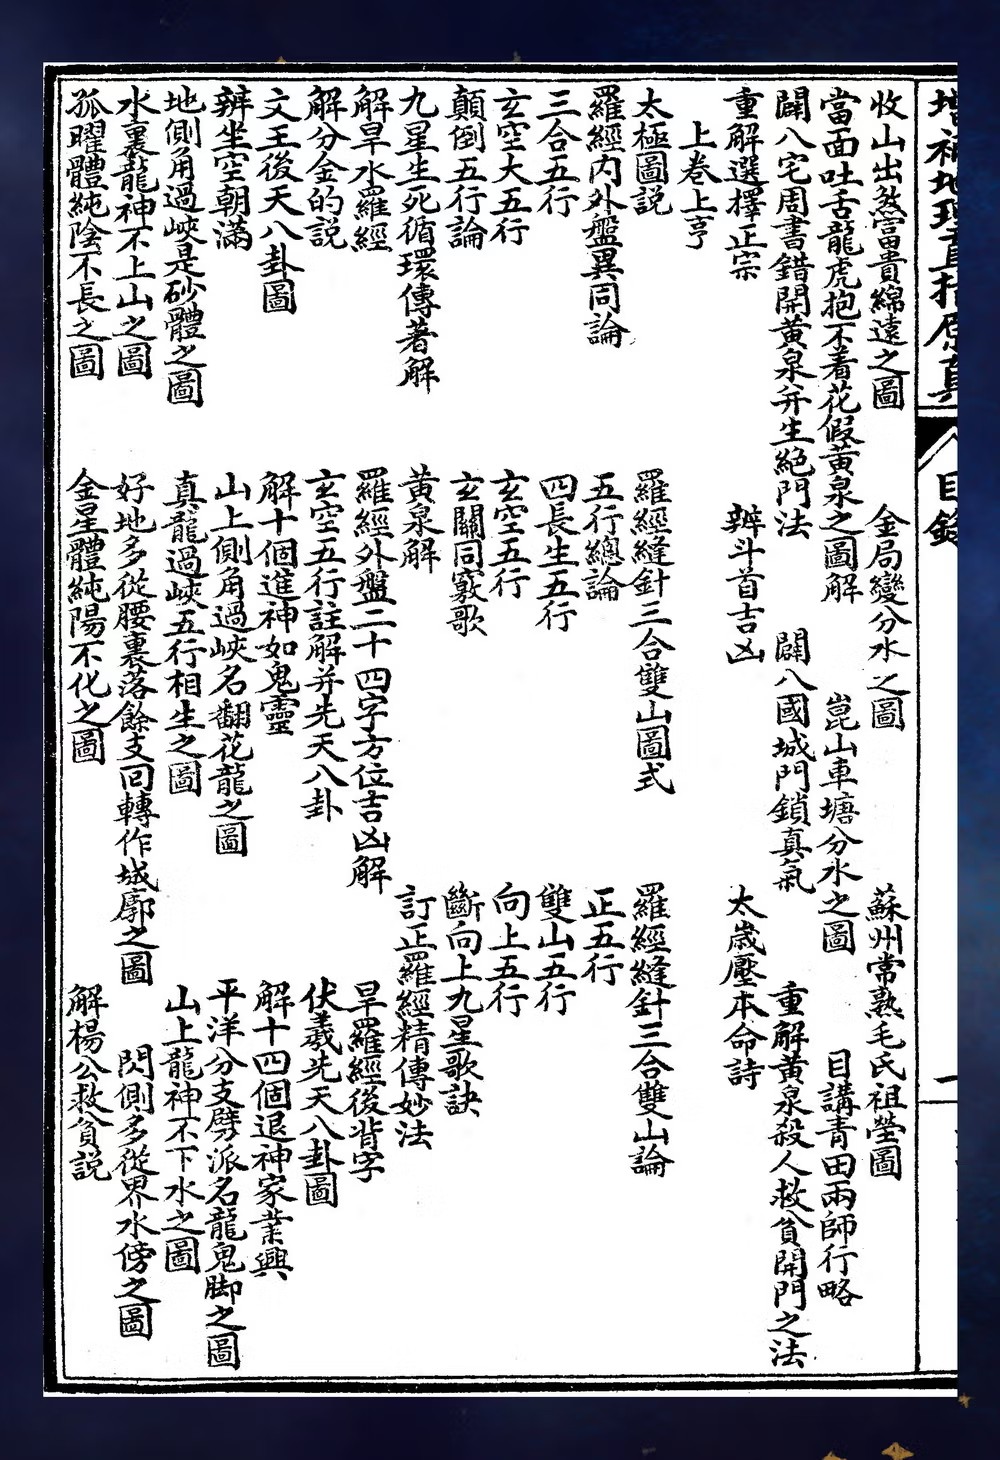 增補地理直指原真 目錄 一
收山出煞富貴綿遠之圖 金局變分水之圖 蘇州常熟毛氏祖塋圖
當面吐舌龍虎抱不着花假黃泉之圖解 崑山車塘分水之圖 目講青田兩師行略
闢八宅周書錯開黃泉并生絕門法 闢八國城門鎖真氣 重解黃泉殺人救貧開門之法
重解選擇正宗 辨斗首吉凶 太歲壓本命詩
上卷上亨
太極圖説 羅經縫針三合雙山圖式 羅經縫針三合雙山論
羅經內外盤異同論 五行總論 正五行
三合五行 四長生五行 雙山五行
玄空大五行 玄空五行 向上五行
顛倒五行論 玄關同竅歌 斷向上九星歌訣
九星生死循環傳著解 黃泉解 訂正羅經精傳妙法
解旱水羅經 羅經外盤二十四字方位吉凶解 旱羅經後背字
解分金的説 玄空五行註解并先天八卦 伏羲先天八卦圖
文王後天八卦圖 解十個進神如鬼靈 解十四個退神家業興
辨坐空朝滿 山上側角過峽名翻花龍之圖 平洋分支劈派名龍鬼脚之圖
地側角過峽是砂體之圖 真龍過峽五行相生之圖 山上龍神不下水之圖
水裏龍神不上山之圖 好地多從腰裏落餘支回轉作城廓之圖 閃側多從界水傍之圖
孤曜體純陰不長之圖 金星體純陽不化之圖 解楊公救貧説